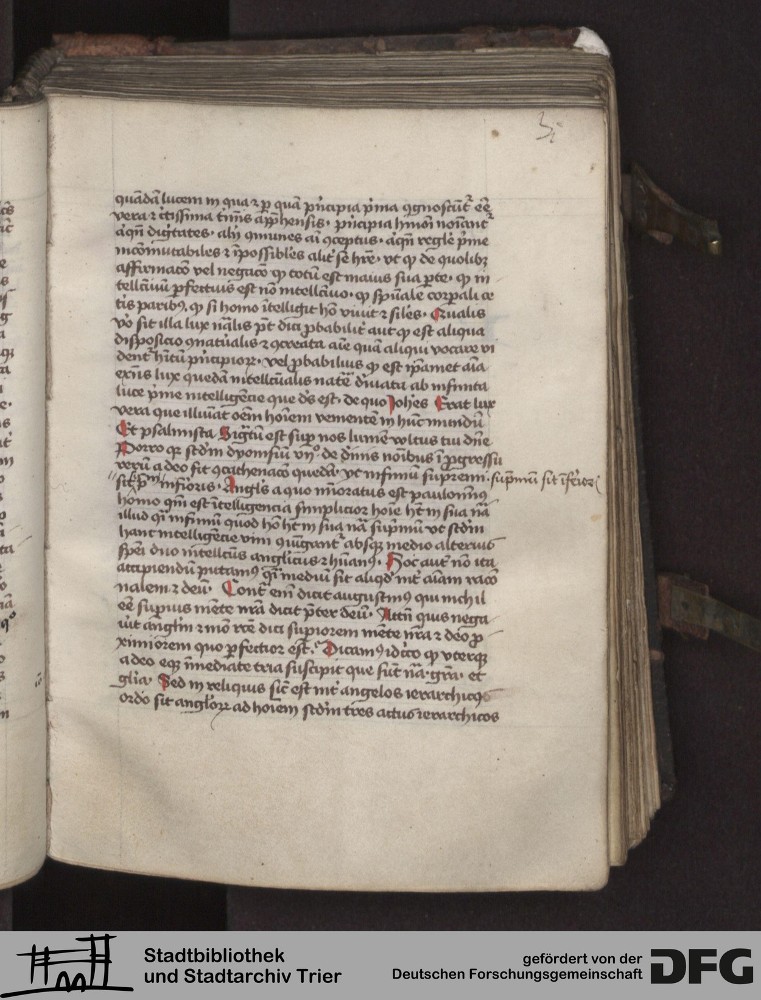 quādā lucem in qua ⁊ p quā p̃ncipia p̃ma ɔgnoscūt᷑ eē
vera ⁊ c̃tissima t̃mīs app̃hensis · p̃ncipia hmōi noīant᷑
a q̄ndā dignitates · alij ɔmunes aī ɔceptus · a q̄ndā regle p̃me
incōmutabiles ⁊ īpossibles alit᷑ se hr̄e · vt ꝙ de quolibꝫ
affirmacō vel negacō ꝙ totū est maius sua pte · ꝙ in
tellc̄iuū pfectius est nō intellc̄iuo · ꝙ spūale corpali ce
tis paribꝰ, ꝙ si homo ītelligit hō viuit ⁊ siles · Qualis
vo sit illa lux nālis pt̄ dici pbabilit᷑ aut ꝙ est aliqua
dispositio ɔnatūalis ⁊ ɔcreata aīe quā aliqui vocare vi
dent᷑ h̄itū p̃ncipioꝝ · vel pbabilius ꝙ est ip̄amet aīa
exn̄s lux quedā intellc̄ualis nate᷑ diuata ab infinita
luce p̃me intelligēcie que ds̄ est · de quo Joh̄es Erat lux
vera que illuīat oēm hoīem veniente in hūc mundū
Et psalmista Sig̃tū est sup nos lumē vltus tui dn̄e
Porro qꝛ scd̄m dyonisiū vijº de diuīs noībus ī pgressu
verū a deo fit ɔcathenacō quedā · vt infimū supremi · sup̃mū sit īferioꝛ
infioris · Angls̄ a quo mīoratus est paulomīꝰ
homo qm̄ est ītelligencia simplicior hoīe ht̄ in sua nā
illud q̄si infimū quod hō ht̄ in sua nā sup̃mū vt scd̄m
hanc intelligēcie vim ɔiūgant᷑ absqꝫ medio alterius
spēi duo intellc̄us anglicus ⁊ hūanꝰ · Hoc aut̄ nō ita
accipiendū putamꝰ q̄si mediū sit aliqd int᷑ aīam racō
nalem ⁊ deū · Cont᷑ em̄ dicit augustinꝰ qui nichil
eē supius mēte nr̄a dicit p̃ter deū · Attn̄ quis nega
uit anglm̄ ⁊ īmo rōe dici supiorem mēte nr̄a ⁊ deo p
ximiorem quo pfectior est · Dicamꝰ idcō ꝙ vterqꝫ
a deo eqꝫ īmediate tria suscipit que sūt nā · gr̄a · et
glīa · Sed in reliquis sic̄ est int᷑ angelos ierarchicꝰ
ordo sit angloꝝ ad hoīem scd̄m tres actus ierarchicos
Stadtbibliothek
und Stadtarchiv Trier
gefördert von der
Deutschen Forschungsgemeinschaft
DFG